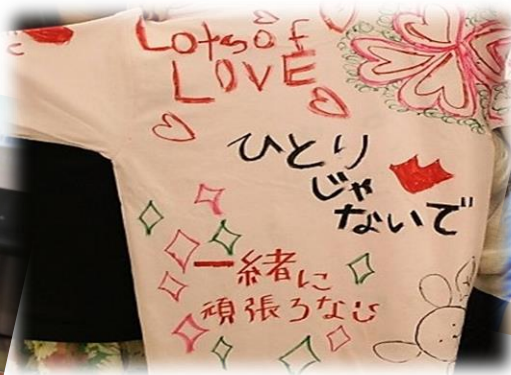 Lots of
LOVE
ひとり
じゃ
ないで
一緒に
頑張ろなʊ